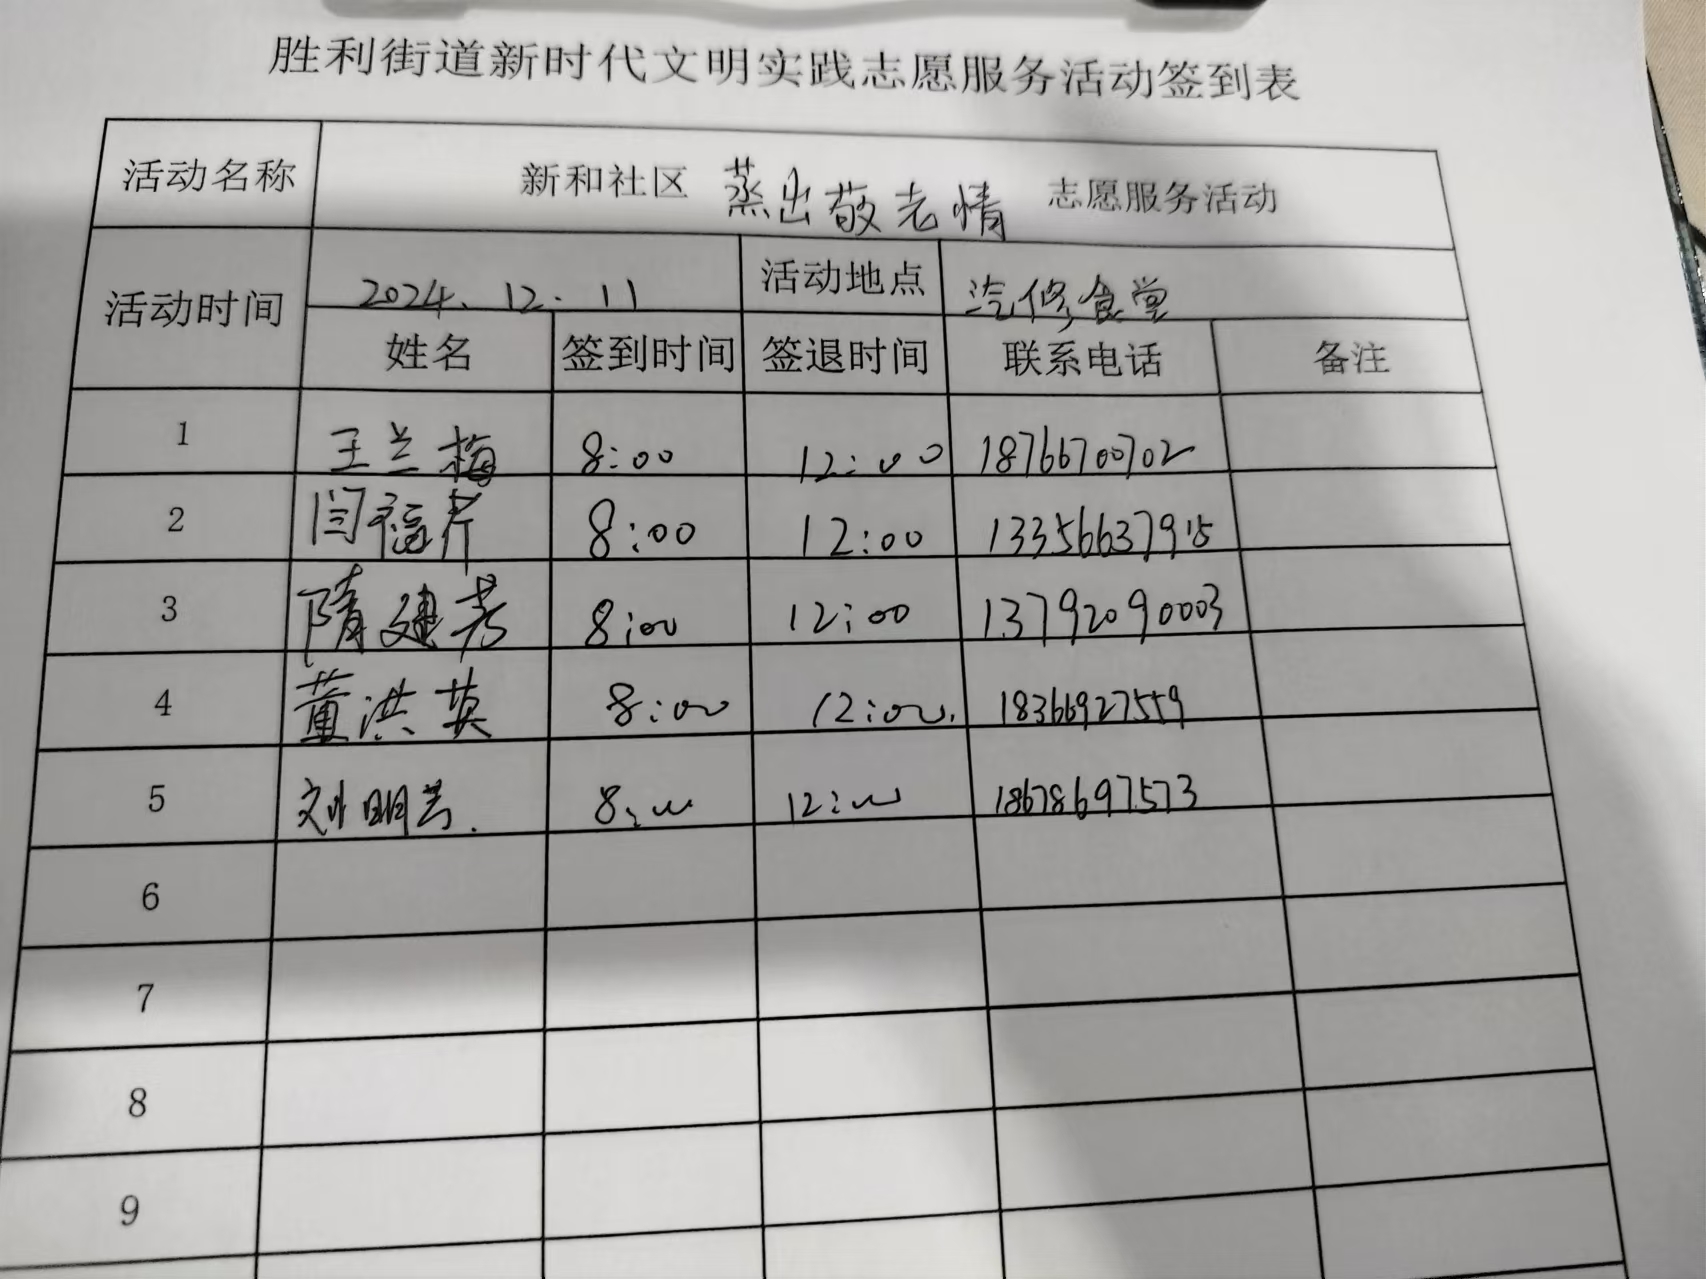 胜利街道新时代文明实践志愿服务活动签到表
活动名称 新和社区 蒸出敬老情 志愿服务活动
活动时间 2024.12.11 活动地点 汽修食堂
姓名 签到时间 签退时间 联系电话 备注
1 王兰梅 8:00 12:00 18766700702
2 闫福芹 8:00 12:00 13356637915
3 隋建芳 8:00 12:00 13792090003
4 董洪英 8:00 12:00. 18366927559
5 刘明芸. 8:00 12:00 18678697573
6
7
8
9